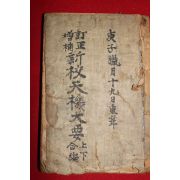 庚子臘月十九日東華
訂正
增補
新校天機大要
上下
合編